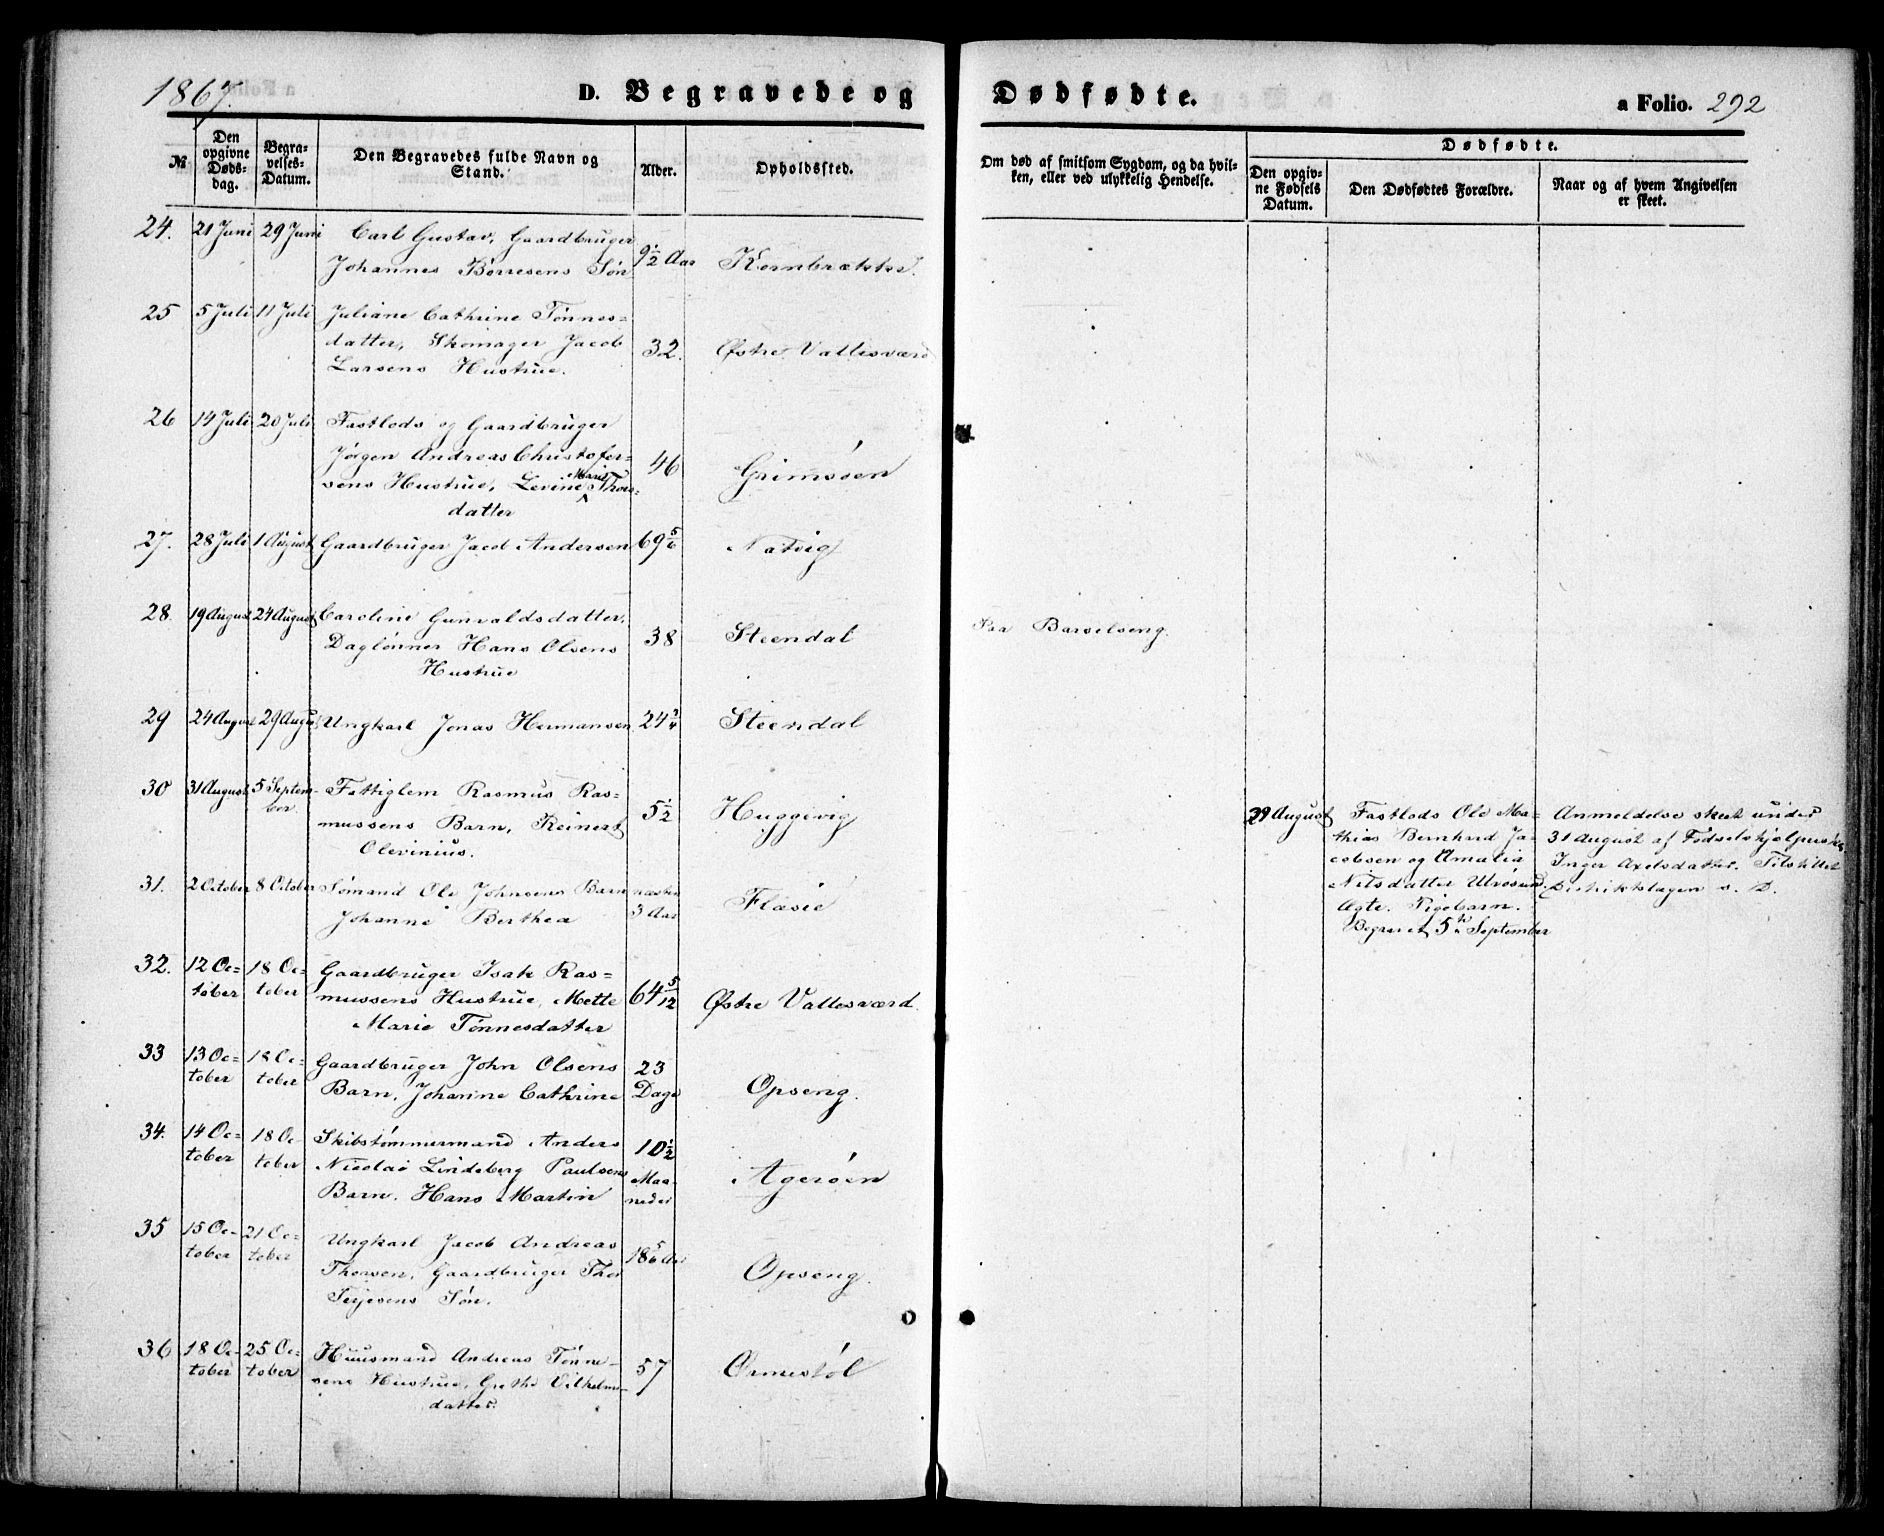 1867.
D. Begravede og Dødfødte.
a Folio. 292
№
Den opgivne Dødsdag.
Begravelses-Datum.
Den Begravedes fulde Navn og Stand.
Alder.
Opholdssted.
Om død af smitsom Sygdom, og da hvilken, eller ved ulykkelig Hendelse.
Dødfødte.
Den opgivne Fødsels Datum.
Den Dødfødtes Forældre.
Naar og af hvem Angivelsen er skeet.
24. 21 Juni 29 Juni Carl Gustav, Gaardbruger
Johannes Børresens Søn 9 1/2 Aar Kornbrække.
25 5 Juli 11 Juli Juliane Cathrine Tønnes=
datter, Skomager Jacob 32. Østre Vallesværd
Larsens Hustrue.
26 14 Juli 20 Juli Fastlods og Gaardbruger
Jørgen Andreas Christofer- 46 Grimsøen
sens Hustrue, Levine Marie Thors=
datter
27. 28 Juli 1 August Gaardbruger Jacob Andersen 69 5/6 Natvig
28. 19 August 24 August Caroline Gunvaldsdatter,
Daglønner Hans Olsens 38 Steendal Paa Barselseng.
Hustrue
29 24 August 29 August Ungkarl Jonas Hermansen 24 3/4 Steendal
30 31 August 5 Septem-
ber Fattiglem Rasmus Ras=
mussens Barn, Reinert 5 1/2 Huggevig
Olevinius.
29 August Fastlods Ole Ma-
thias Bernhard Ja-
cobsen og Amalia
Nilsdatter Ulvøsund,
Ægte. Pigebarn.
Begravet 5te September
Anmeldelse skeet under
31 August af Fødselshjelperske
Inger Axelsdatter. Tilstillet
Distriktslægen s. D.
31. 2 October 8 October Sømand Ole Johnsens Barn næsten
Johanne Berthea 3 Aar Flæsie
32. 12 Oc=
tober 18 Oc-
tober Gaardbruger Isak Ras=
mussens Hustrue, Mette 64 5/12 Østre Vallesværd.
Marie Tønnesdatter
33 13 Oc-
tober 18 Oc-
tober Gaardbruger John Olsens 23
Barn, Johanne Cathrine Dage Opseng.
34. 14 Oc=
tober 18 Oc
tober Skibstømmermand Anders 10 1/2
Nicolai Lindeberg Paulsens Maa-
Barn, Hans Martin neder Agerøen
35 15 Oc-
tober 21 Oc-
tober Ungkarl Jacob Andreas 18 5/6 Aar
Thorsen, Gaardbruger Thor Opseng.
Terjesens Søn.
36 18 Oc-
tober 25 Oc-
tober Huusmand Andreas Tønne-
sens Hustrue, Grethe Vilhelms- 57 Ormestøl
datter.